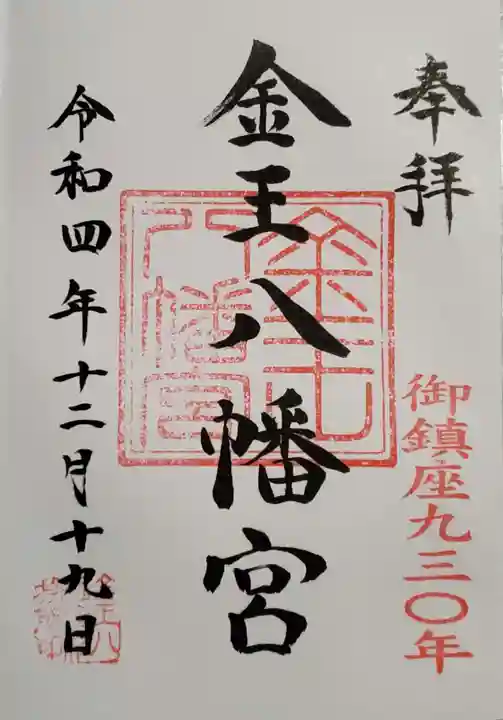 奉拝
御鎮座九三〇年
金王八幡宮
金王八幡宮
令和四年十二月十九日